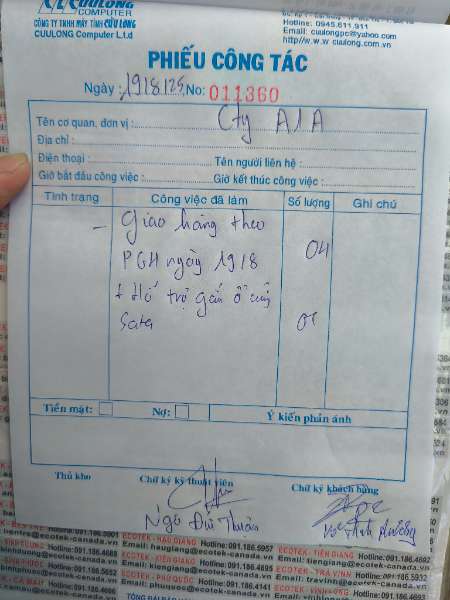 CUULONG
COMPUTER
CÔNG TY TNHH MÁY TÍNH CỬU LONG
CUULONG Computer L.t.d
Hotline: 0945.611.911
Email: cuulongpc@yahoo.com
http//w.w.w cuulong.com.vn
PHIẾU CÔNG TÁC
Ngày: 19/8/25 No: 011360
Tên cơ quan, đơn vị: Cty AIA
Địa chỉ:
Điện thoại: Tên người liên hệ:
Giờ bắt đầu công việc: Giờ kết thúc công việc:
Tình trạng Công việc đã làm Số lượng Ghi chú
– Giao hàng theo
PGH ngày 19/8 04
+ Hỗ trợ gắn ổ cứng
Sata 01
Tiền mặt: Nợ: Ý kiến phản ánh
Thủ kho Chữ ký kỹ thuật viên Chữ ký khách hàng
Ngô Đức Thuận
ECOTEK - HẬU GIANG Hotline: 091.186.5957 ECOTEK - TIỀN GIANG Hotline: 091.186.4692
Email: haugiang@ecotek-canada.vn
ECOTEK - TRÀ VINH
Email: travinh@ecotek-canada.vn
ECOTEK - PHÚ QUỐC Hotline: 091.186.4141 ECOTEK - VĨNH LONG
Email: phuquoc@ecotek-canada.vn